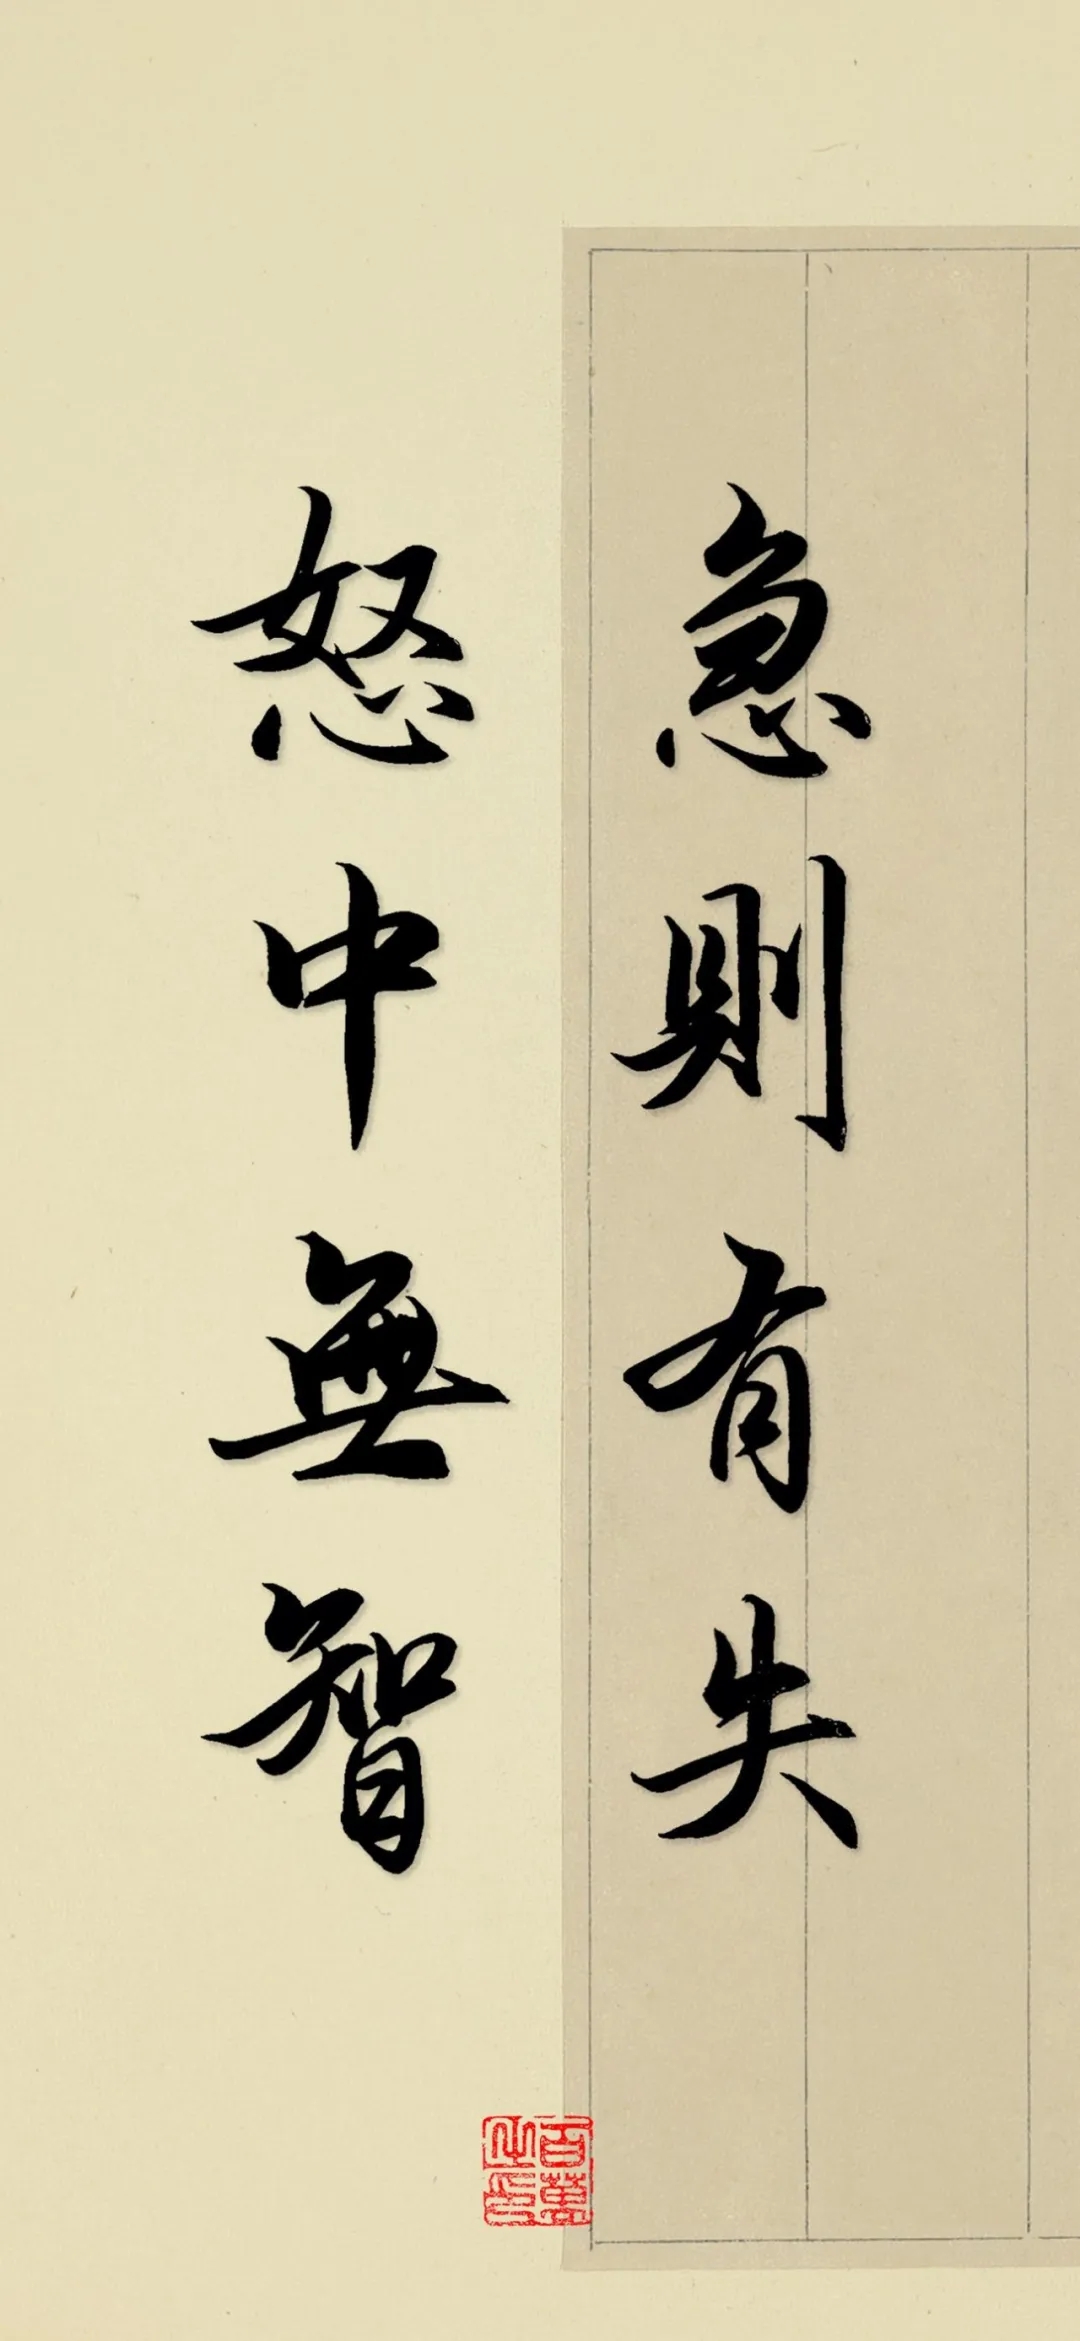 急則有失
怒中無智